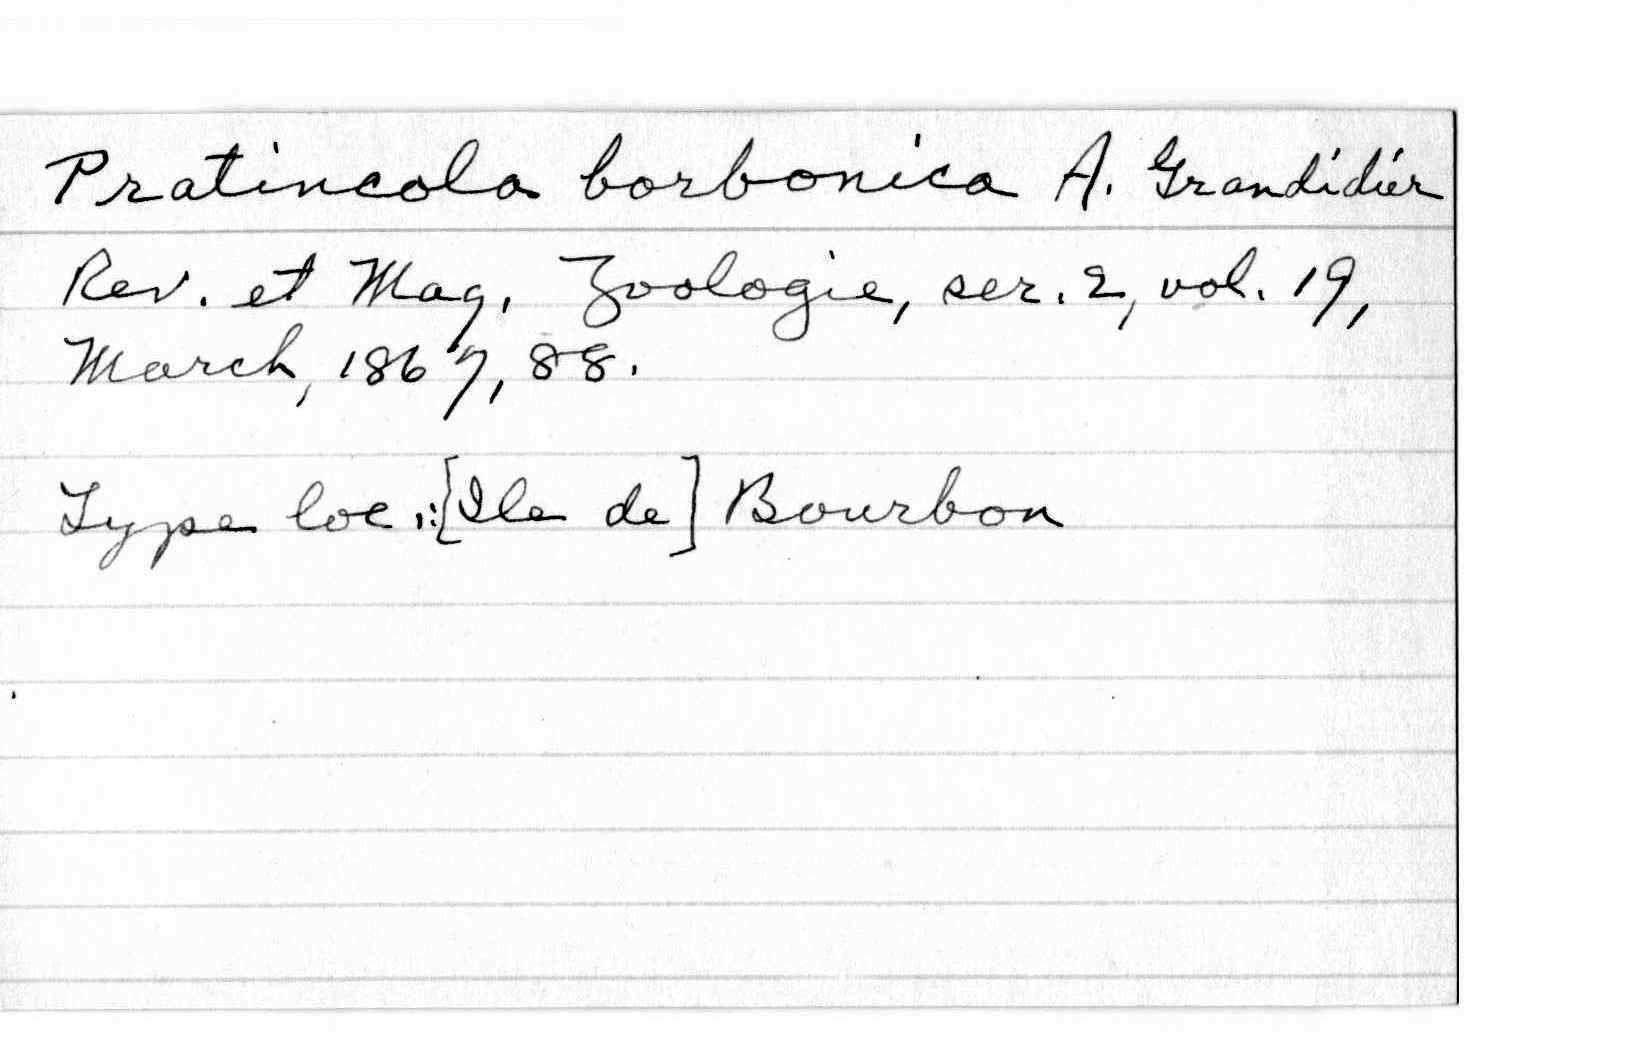 Pratincola borbonica A. Grandidier
Rev. et Mag. Zoologie, ser. 2, vol. 19,
March, 1867, 88.
Type loc.: [Ile de] Bourbon